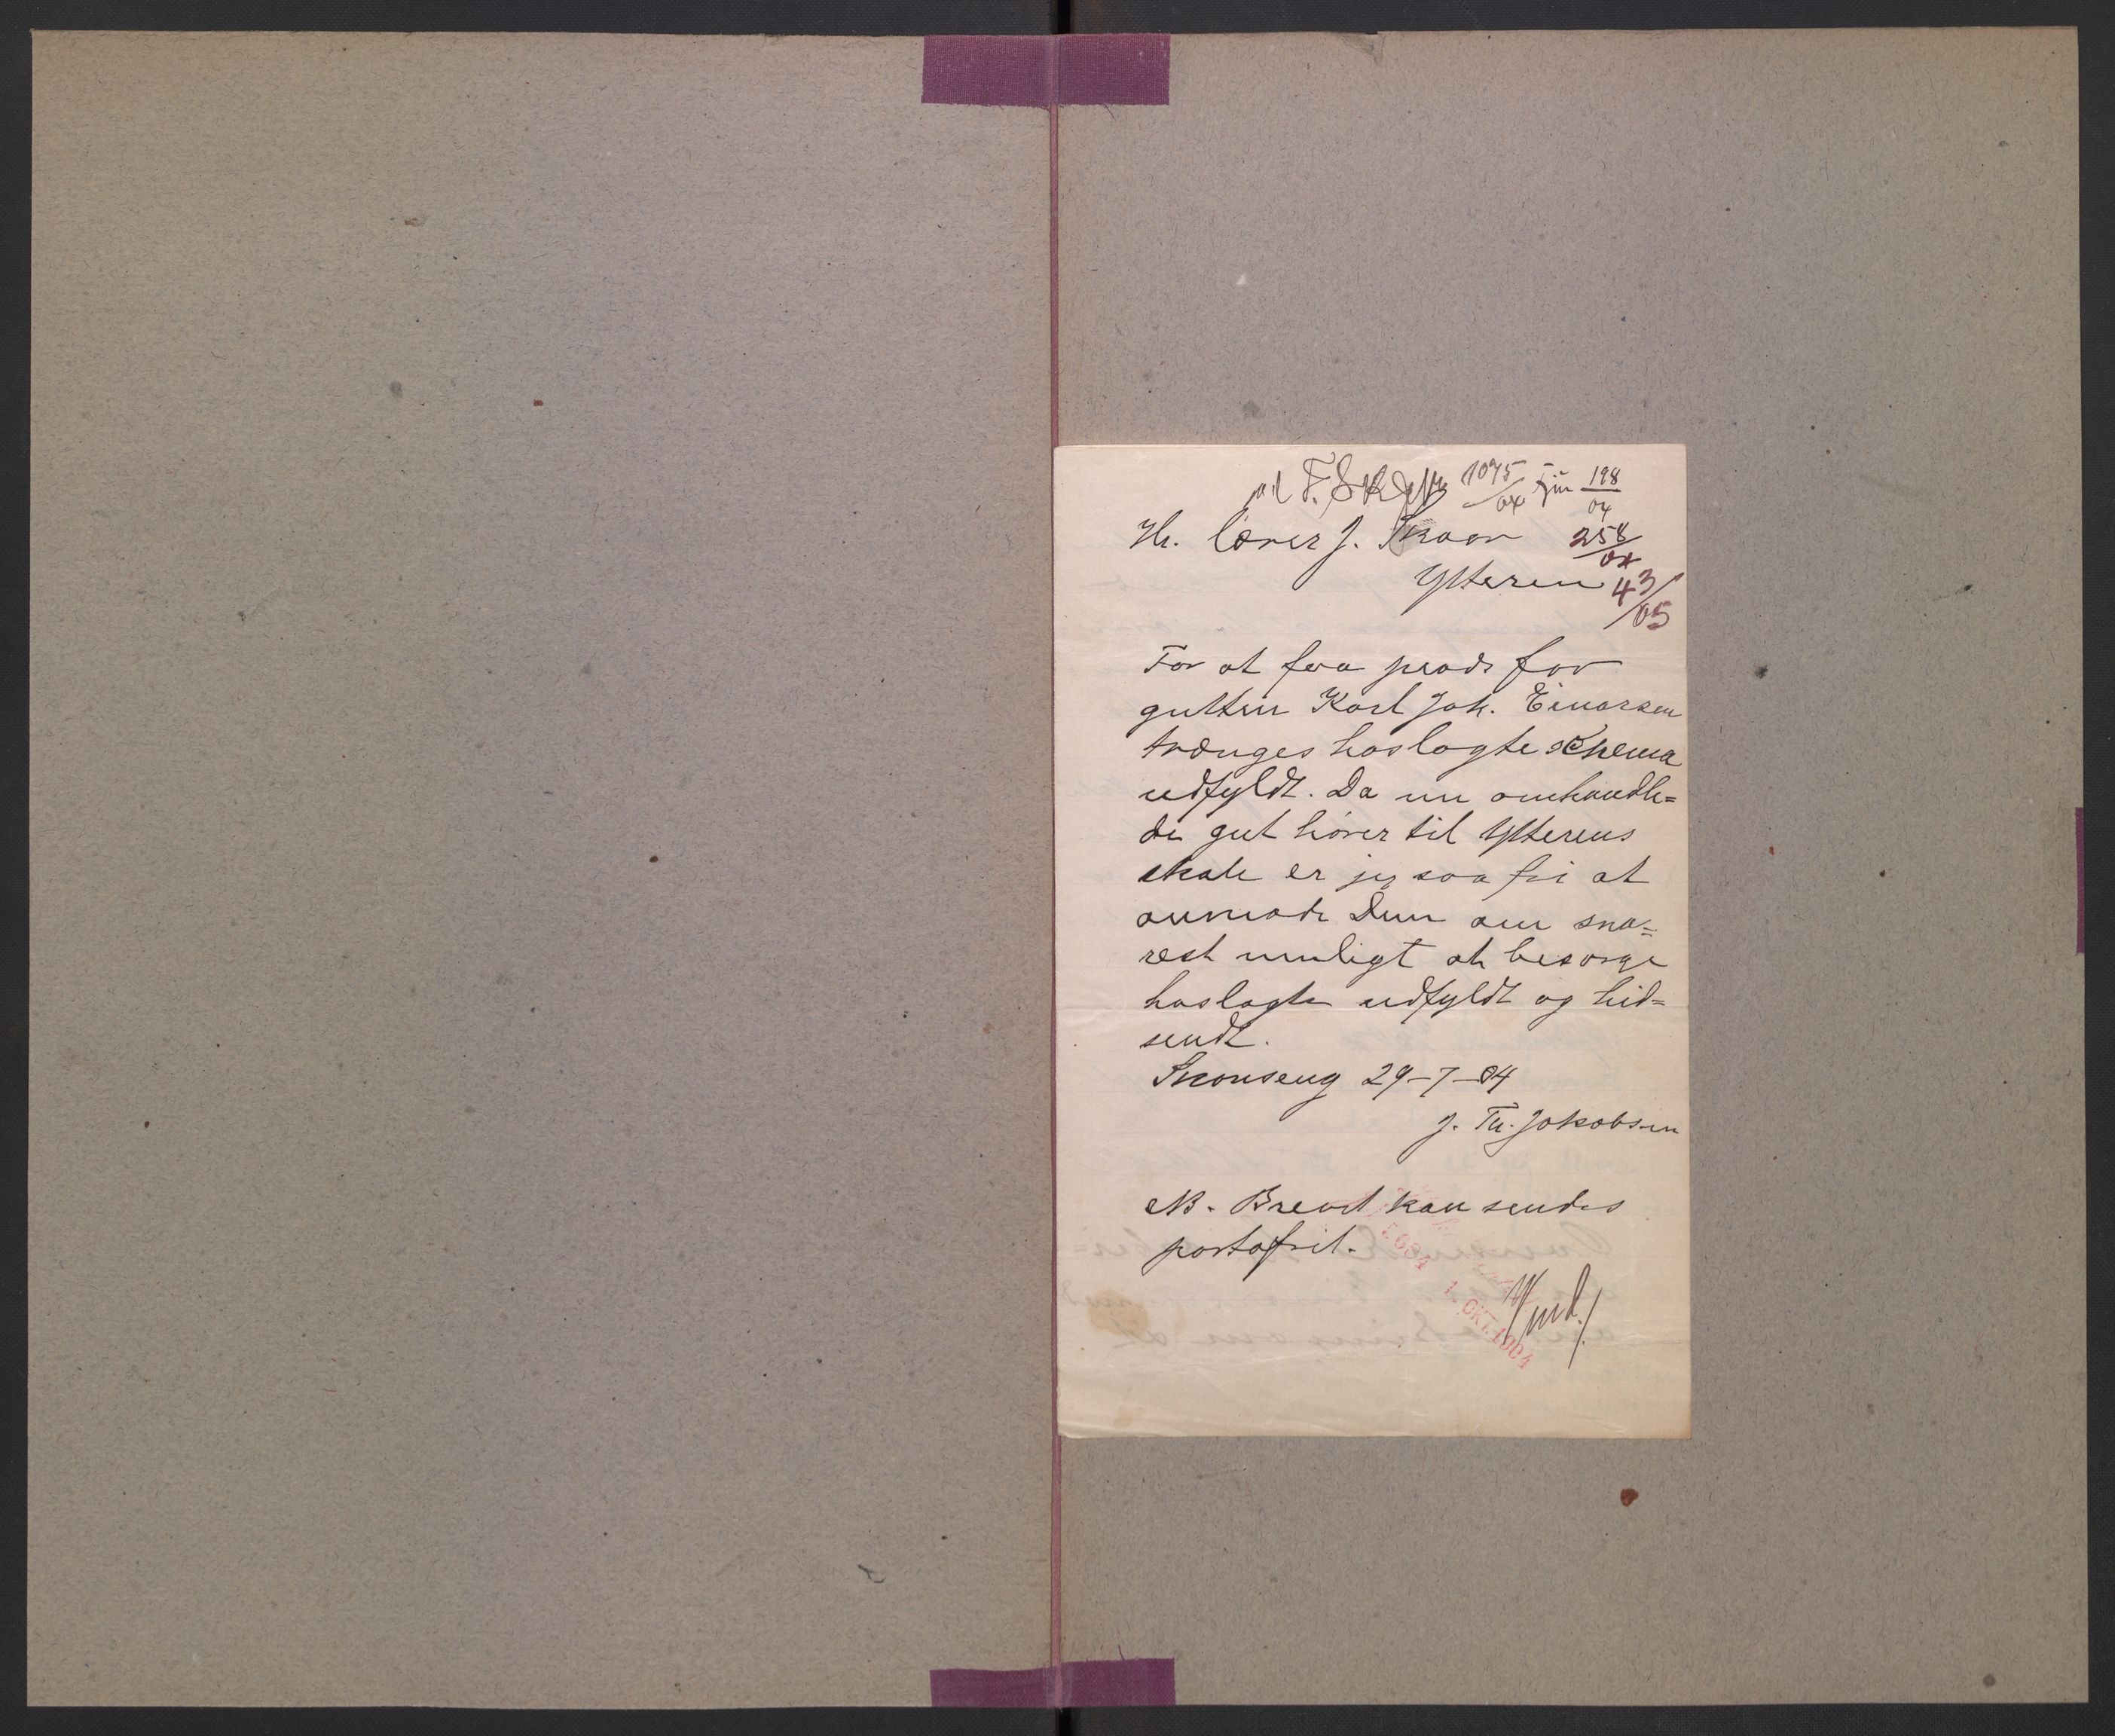 1075/04 Fin 198/04
Hr. lærer J. Skaar 258/04
Ytteren 43/05
For at faa plads for
gutten Karl Joh. Einarsen
trænges hoslagte schema
udfyldt. Da nu omhandle=
de gut hører til Ytterens
skole er jeg saa fri at
anmode Dem om sna=
rest muligt at besørge
hoslagte udfyldt og hid=
sendt.
Skonseng 29-7-04
J. Th. Jakobsen
NB. Brevet kan sendes
portofrit.
5634
1. OKT. 1904
Vend!